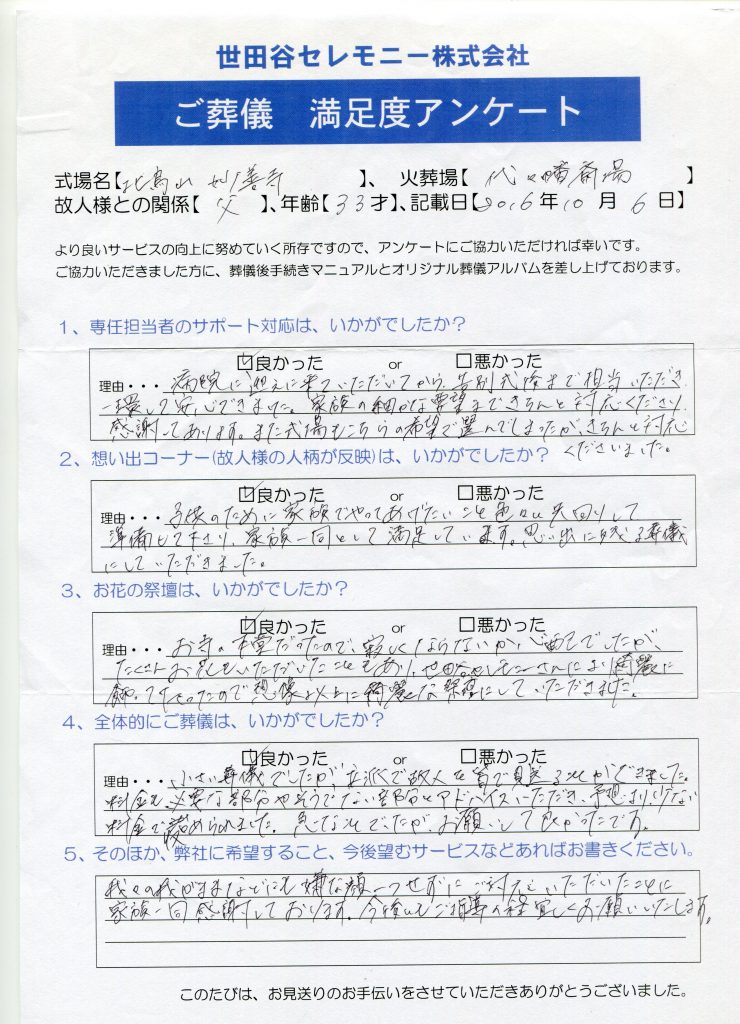 世田谷セレモニー株式会社
ご葬儀 満足度アンケート
式場名【北烏山 妙善寺】、 火葬場【代々幡斎場】
故人様との関係【父】、年齢【33才】、記載日【2016年10月6日】
より良いサービスの向上に努めていく所存ですので、アンケートにご協力いただければ幸いです。
ご協力いただきました方に、葬儀後手続きマニュアルとオリジナル葬儀アルバムを差し上げております。
1、専任担当者のサポート対応は、いかがでしたか？
☑良かった or □悪かった
理由・・・病院に迎えに来ていただいてから、告別式後まで担当いただき
一環して安心できました。家族の細かな要望まできちんと対応くださり、
感謝してあります。また式場もこちらの希望で選んでしまったが、きちんと対応
くださいました。
2、想い出コーナー(故人様の人柄が反映)は、いかがでしたか？
☑良かった or □悪かった
理由・・・子供のために家族でやってあげたいこと色々と先回りして
準備して下さり、家族一同として満足しています。思い出に残る葬儀
にしていただきました。
3、お花の祭壇は、いかがでしたか？
☑良かった or □悪かった
理由・・・お寺の本堂だったので、寂しくならないか、心配でしたが、
たくさんお花をいただいたこともあり、世田谷セレモニーさんにより綺麗に
飾って下さったので想像以上に綺麗な祭壇にしていただきました。
4、全体的にご葬儀は、いかがでしたか？
☑良かった or □悪かった
理由・・・小さい葬儀でしたが、立派で故人を皆で見送ることができました。
料金も必要な部分やそうでない部分とアドバイスいただき、予想より少ない
料金で納められました。急なことでしたが、お願いして良かったです。
5、そのほか、弊社に希望すること、今後望むサービスなどあればお書きください。
我々の我がままなどにも嫌な顔一つせずにご対応いただいたことに
家族一同感謝しております。今後ともご指導の程宜しくお願いいたします。
このたびは、お見送りのお手伝いをさせていただきありがとうございました。